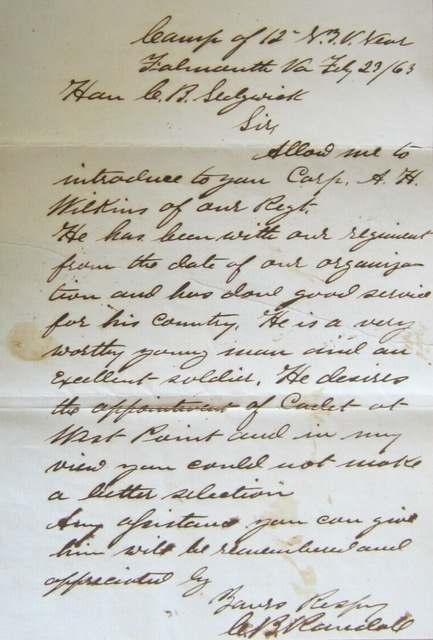 Camp of 12th N.Y.V. Near
Falmouth Va Feby 23/63
Hon C. B. Sedgwick
Sir,
Allow me to
introduce to you Corp. A. H.
Wilkins of our Regt.
He has been with our regiment
from the date of our organiza-
tion and has done good service
for his country. He is a very
worthy young man and an
excellent soldier. He desires
the appointment of Cadet at
West Point and in my
view you could not make
a better selection
Any assistance you can give
him will be remembered and
appreciated by
Yours Respy
C. B. Randall